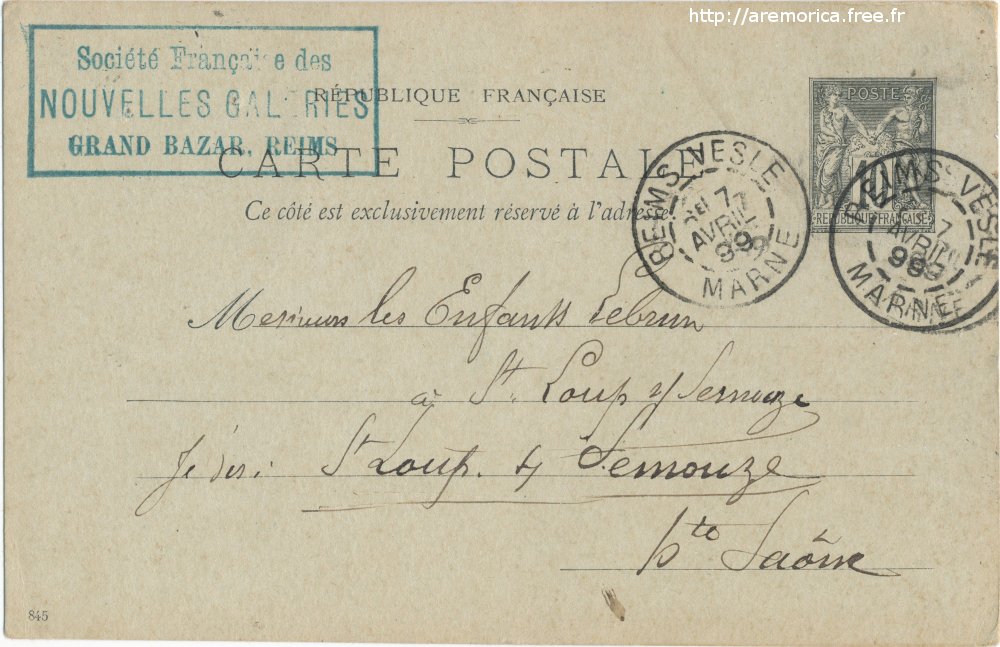 http://aremorica.free.fr
Société Française des
NOUVELLES GALERIES
GRAND BAZAR, REIMS
RÉPUBLIQUE FRANÇAISE
CARTE POSTALE
Ce côté est exclusivement réservé à l'adresse
POSTE
10
REPUBLIQUE FRANÇAISE
REIMS VESLE
7
AVRIL
99
MARNE
REIMS VESLE
7
AVRIL
99
MARNE
Messieurs les Enfants Lebrun
à St Loup s/ Semouze
St Loup s/ Semouze
hte Saône
845